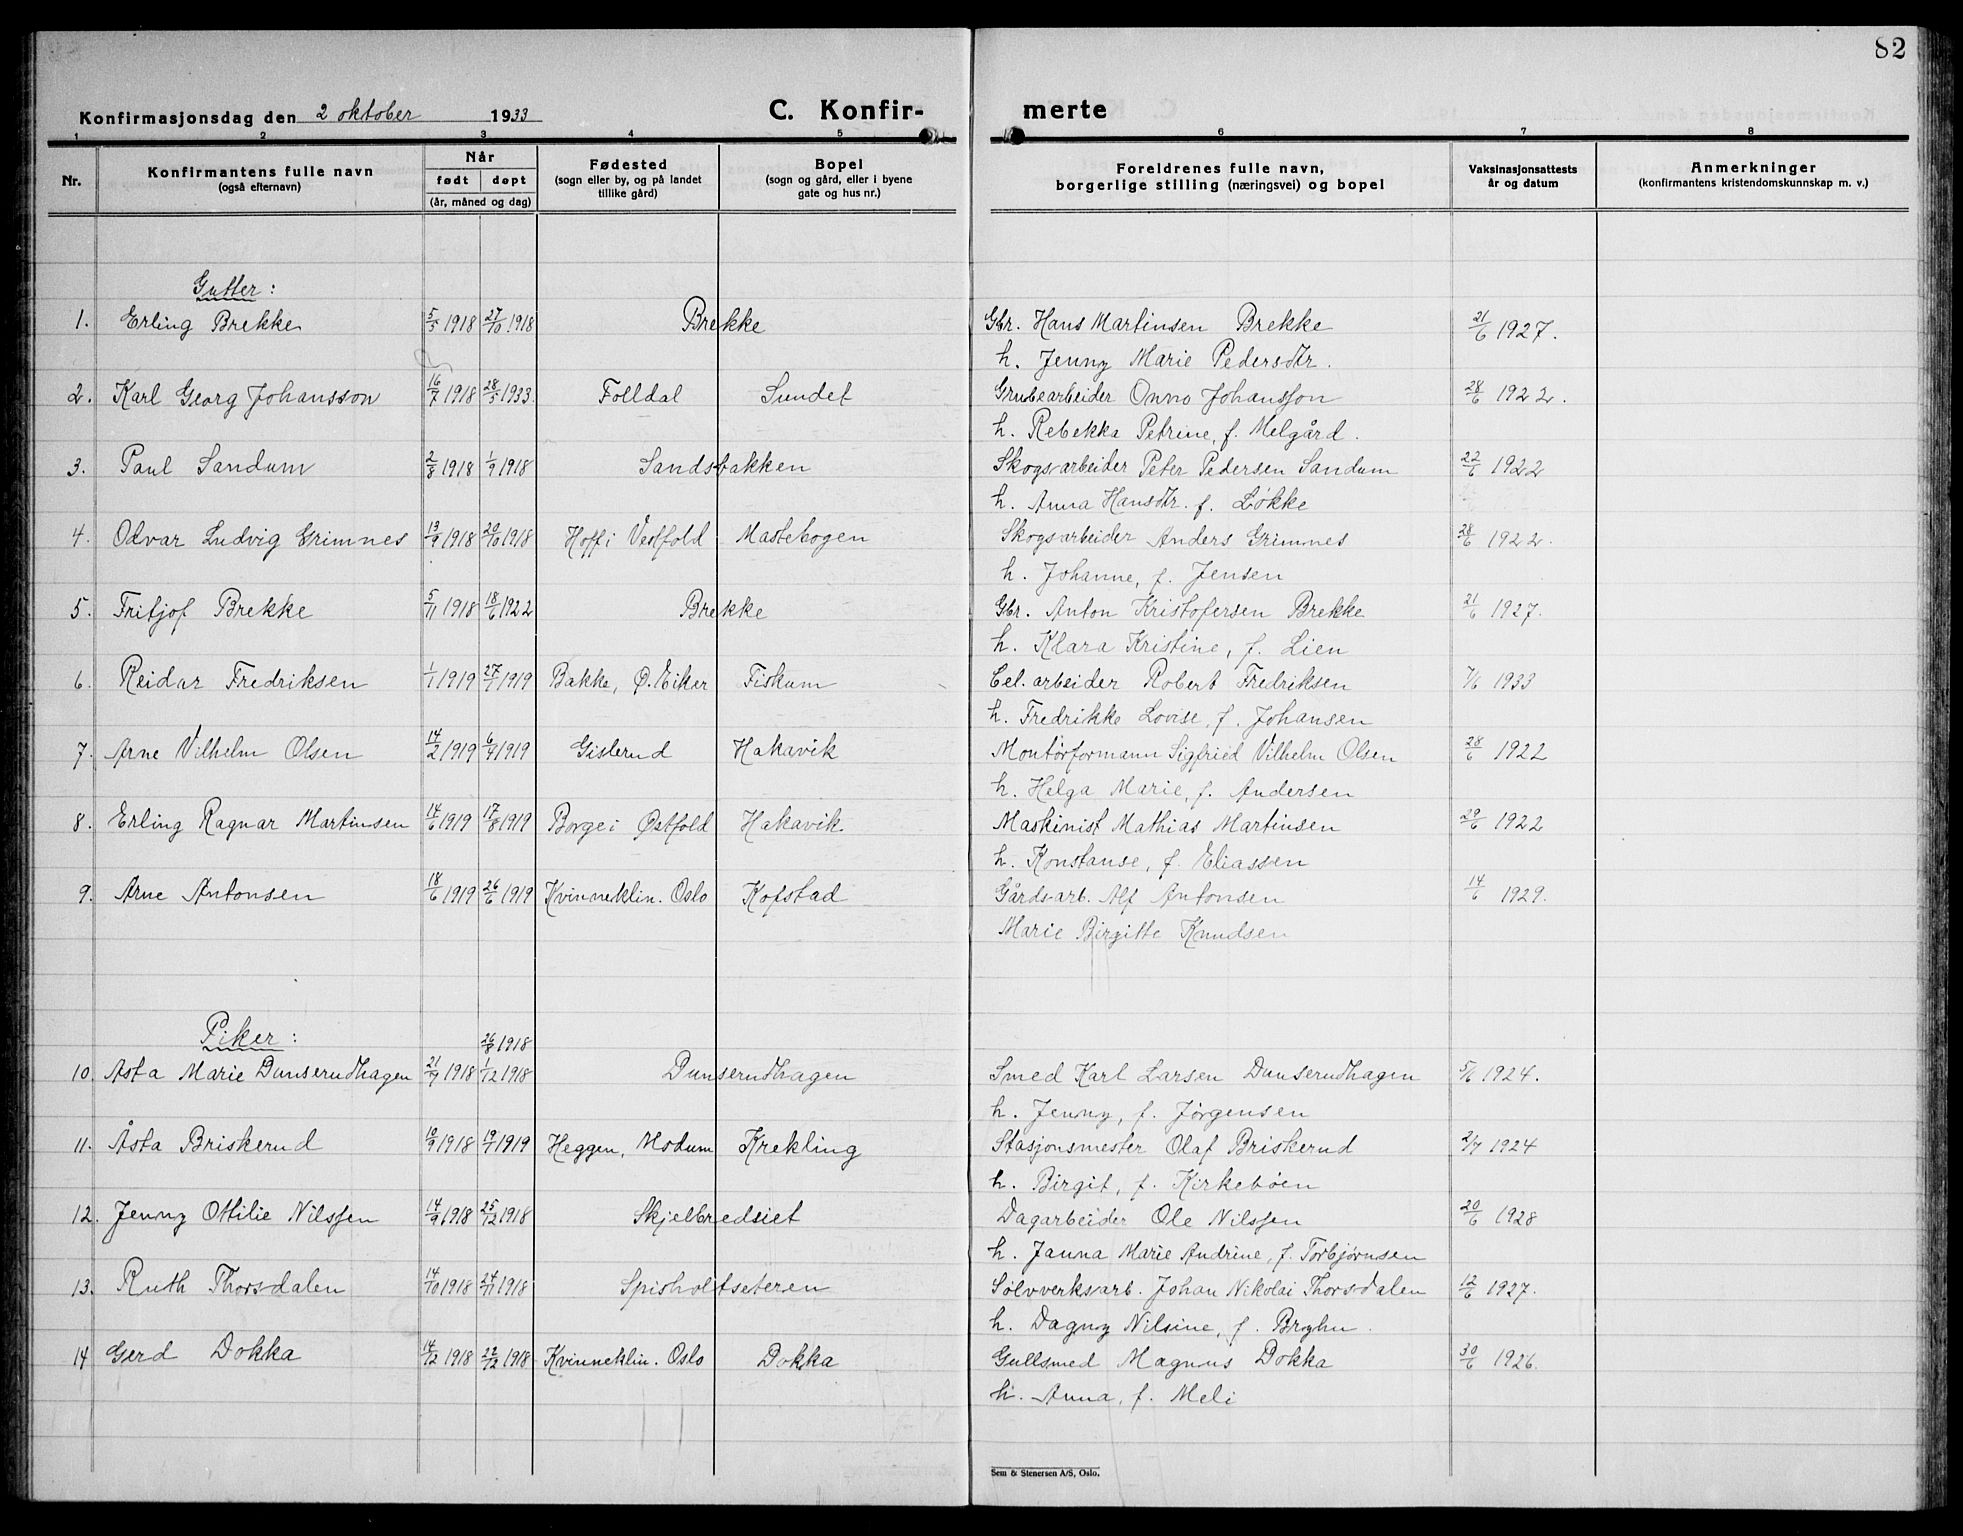 82
Konfirmasjonsdag den 2 oktober 1933 C. Konfir- merte
1 2 3 4 5 6 7 8
Nr. Konfirmantens fulle navn (også efternavn) Når født døpt (år, måned og dag) Fødested (sogn eller by, og på landet tillike gård) Bopel (sogn og gård, eller i byene gate og hus nr.) Foreldrenes fulle navn, borgerlige stilling (næringsvei) og bopel Vaksinasjonsattests år og datum Anmerkninger (konfirmantens kristendomskunnskap m. v.)
Gutter:
1. Erling Brekke 5/5 1918 27/10 1918 Brekke Gbr. Hans Martinsen Brekke 21/6 1927.
h. Jenny Marie Pedersdtr.
2. Karl Georg Johansson 16/7 1918 28/5 1933. Folldal Sundet Grubearbeider Onno Johansson 28/6 1922.
h. Rebekka Petrine, f. Melgård.
3. Paul Sandum 2/8 1918 1/9 1918 Sandsbakken Skogsarbeider Peter Pedersen Sandum 22/6 1922
h. Anna Hansdtr. f. Løkke
4. Odvar Ludvig Grimnes 13/9 1918 20/10 1918 Hoff i Vestfold Mastebogen Skogsarbeider Anders Grimnes 28/6 1922.
h. Johanne, f. Jensen
5. Fritjof Brekke 5/11 1918 18/6 1922 Brekke Gbr. Anton Kristofersen Brekke 21/6 1927.
h. Klara Kristine, f. Lien
6. Reidar Fredriksen 1/1 1919 27/7 1919 Bakke, Ø. Eiker Fiskum Cel. arbeider Robert Fredriksen 7/6 1933
h. Fredrikke Lovise, f. Johansen
7. Arne Vilhelm Olsen 14/2 1919 6/4 1919 Gislerud Hakavik Montørformann Sigfried Vilhelm Olsen 28/6 1922
h. Helga Marie, f. Andersen
8. Erling Ragnar Martinsen 14/6 1919 17/8 1919 Borge i Østfold Hakavik. Maskinist Mathias Martinsen 29/6 1922
h. Konstanse, f. Eliassen
9. Arne Antonsen 18/6 1919 26/6 1919 Kvinneklin. Oslo Kofstad Gårdsarb. Alf Antonsen 14/6 1929.
Marie Birgitte Knudsen
Piker:
26/8 1918
10. Asta Marie Dunserudhagen 21/9 1918 1/12 1918 Dunserudhagen Smed Karl Larsen Dunserudhagen 5/6 1924.
h. Jenny, f. Jørgensen
11. Åsta Briskerud 10/9 1918 19/1 1919 Heggen, Modum Krekling Stasjonsmester Olaf Briskerud 2/7 1924
h. Birgit, f. Kirkebøen
12. Jenny Ottilie Nilssen 14/9 1918 25/12 1918 Skjelbredsiet Dagarbeider Ole Nilssen 20/6 1928
h. Janna Marie Andrine, f. Torbjørnsen
13. Ruth Thorsdalen 14/10 1918 24/11 1918 Spisholtseteren Sølvverksarb. Johan Nikolai Thorsdalen 12/6 1927.
h. Dagny Nilsine, f. Bryhn.
14 Gerd Dokka 14/12 1918 22/12 1918 Kvinneklin. Oslo Dokka Gullsmed Magnus Dokka 30/6 1926.
h. Anna, f. Meli
Sem & Stenersen A/S, Oslo.